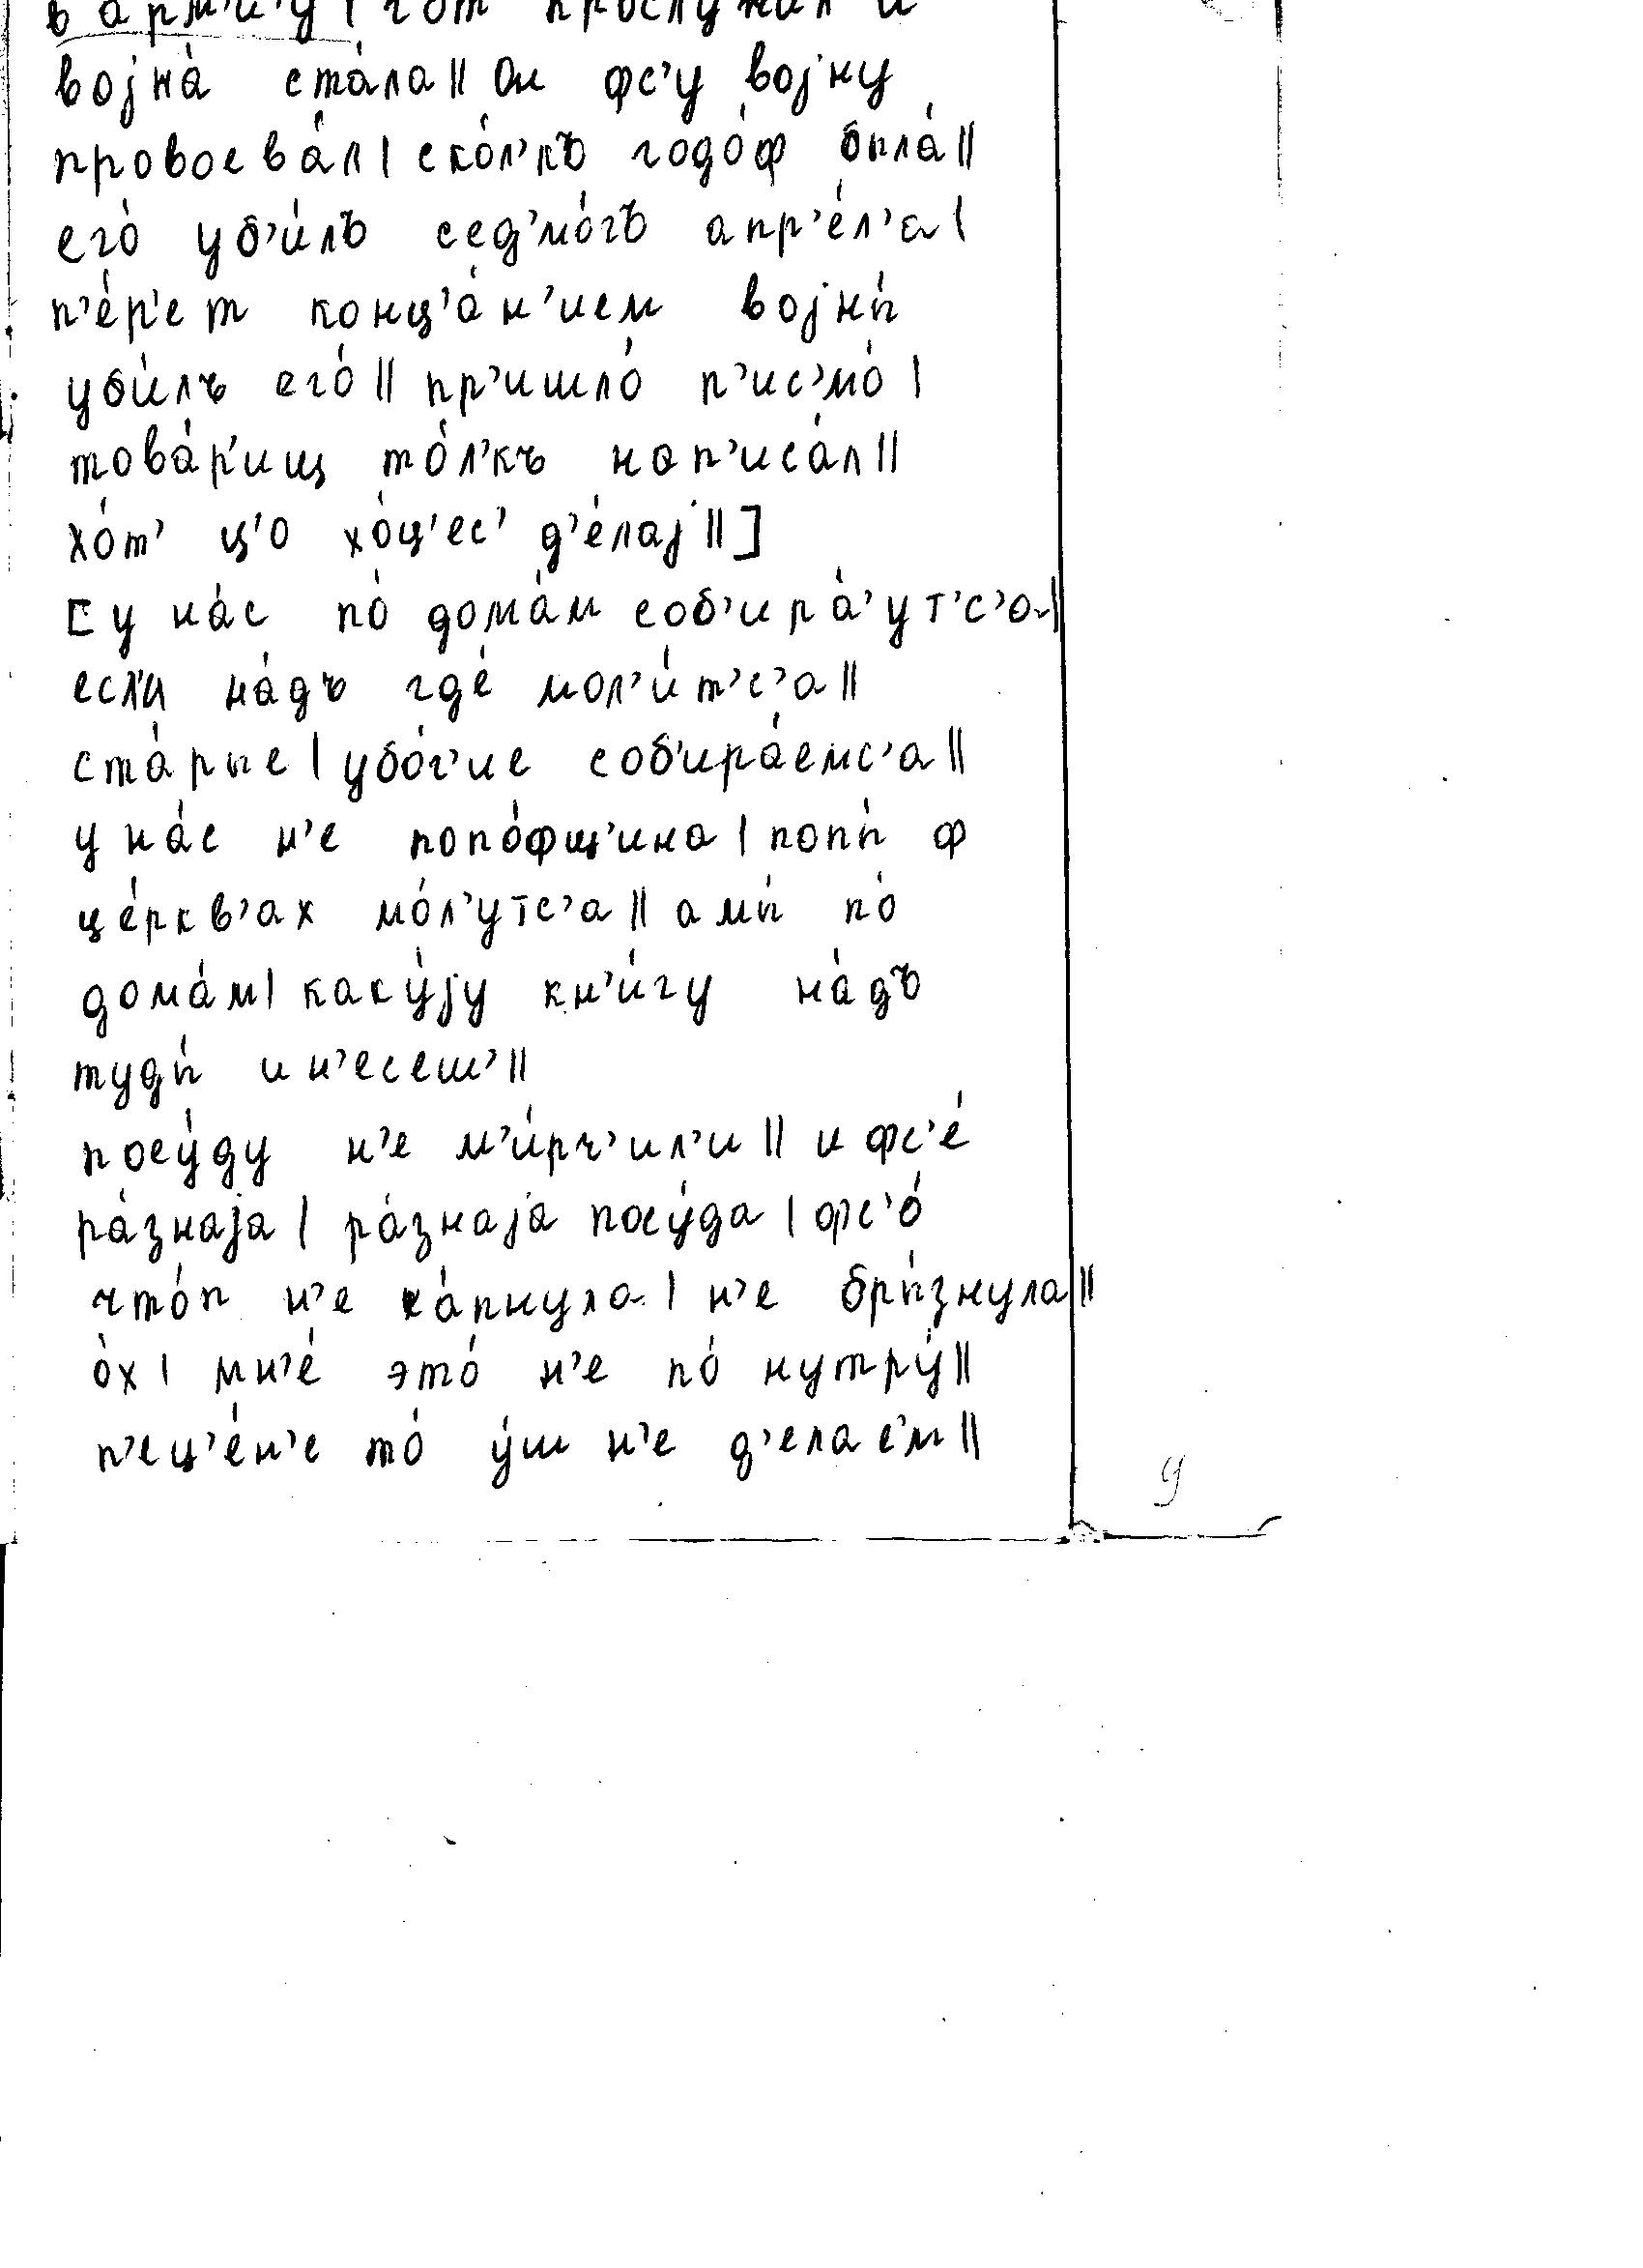 в арм'и'у | гот прослужил и
војна́ ста́ла || Он фс'у војну
провоева́л | ско́л'къ годо́ф была́ ||
его́ уб'и́лъ сед'мо́гъ апр'е́л'а |
п'е́р'ет конц'а́н'ием војны́
уби́лъ его́ || пр'ишло́ п'ис'мо́ |
това́р'ищ то́л'къ нап'иса́л ||
хо́т' ц'о хо́ц'ес' д'е́лај || ]
[ у на́с по́ дома́м соб'ира́'ут'с'а ||
есл'и на́дъ где́ мол'и́т'с'а ||
ста́рые | убо́г'ие соб'ира́емс'а ||
у на́с н'е попо́фщ'ина | попы́ ф
це́ркв'ах мо́л'утс'а || а мы́ по́
дома́м | каку́ју кн'и́гу на́дъ
туды́ и н'есеш' ||
посу́ду н'е м'и́рч'ил'и || и фс'е́
ра́знаја | ра́знаја посу́да | фс'о́
что́п н'е ка́пнула | н'е бры́знула ||
о́х | мн'е́ это́ н'е по́ нутру́ ||
п'ец'е́н'е то́ у́ш н'е д'елаем ||
9